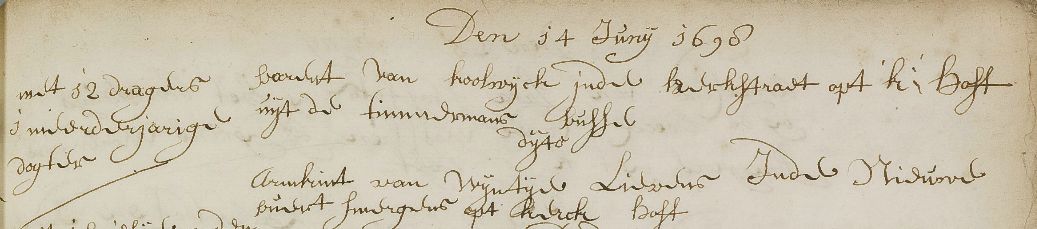 Den 14 Juny 1698
met 12 dragers
1 meerderjarige
dogter
barent van koolwyck inde kerkstraet opt k: Hoff
uyt de timmermans busse
dyto
Armkint van Wyntye Lievens Inde Nieuwe
buert smergens opt kerck Hoff